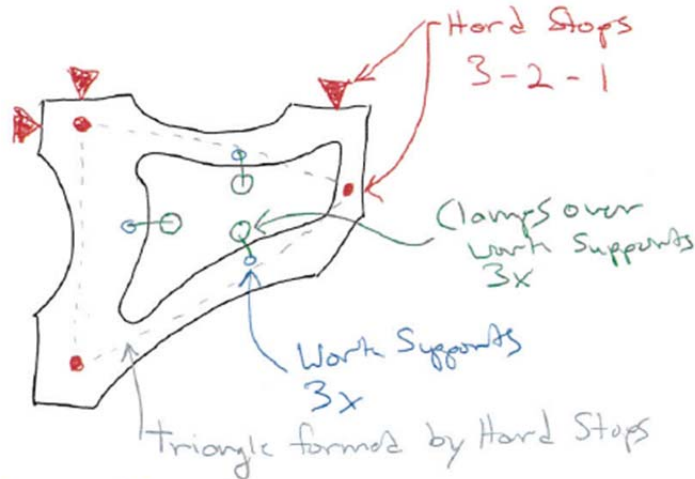 Hard Stops
3-2-1
Clamps over
Work Supports
3x
Work Supports
3x
Triangle formed by Hard Stops